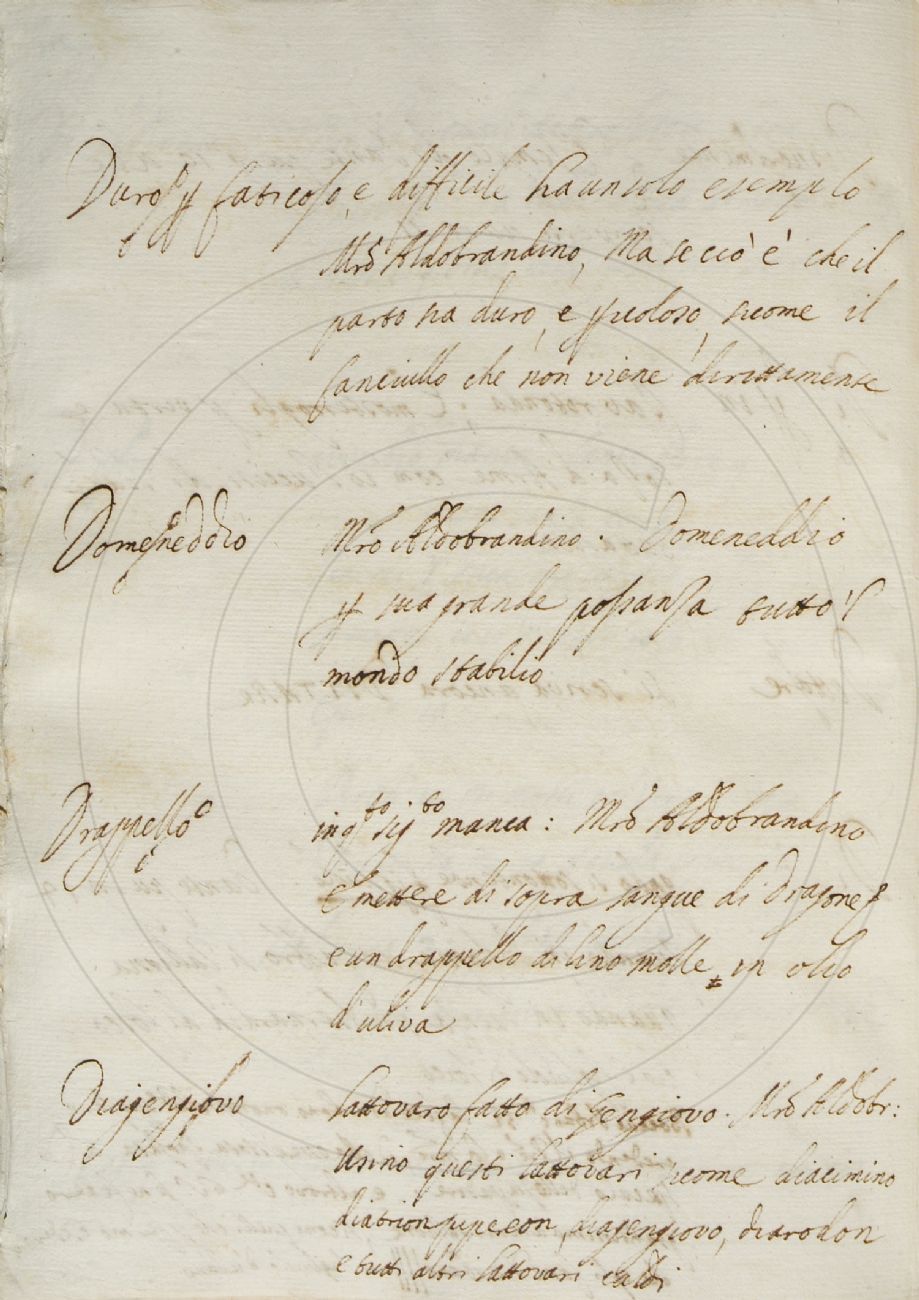 Duro p faticoso, e difficile ha un solo esempio
Mro Aldobrandino, Ma se cciò è che il
parto sia duro, e pericoloso, sicome il
fanciullo che non viene dirittamente
Domeneddio Mro Aldobrandino. Domeneddio
p sua grande possanza tutto 'l
mondo stabilio
Drappello in qto sigto manca: Mro Aldobrandino
E mettere di sopra sangue di Dragone
e un drappello di lino molle in olio
d'uliva
Diagengiovo lattovaro fatto di Gengiovo. Mro Aldobr:
Usino questi lattovari sicome diacimino
diatrionpipereon, diagengiovo, diarodon
e tutti altri lattovari caldi